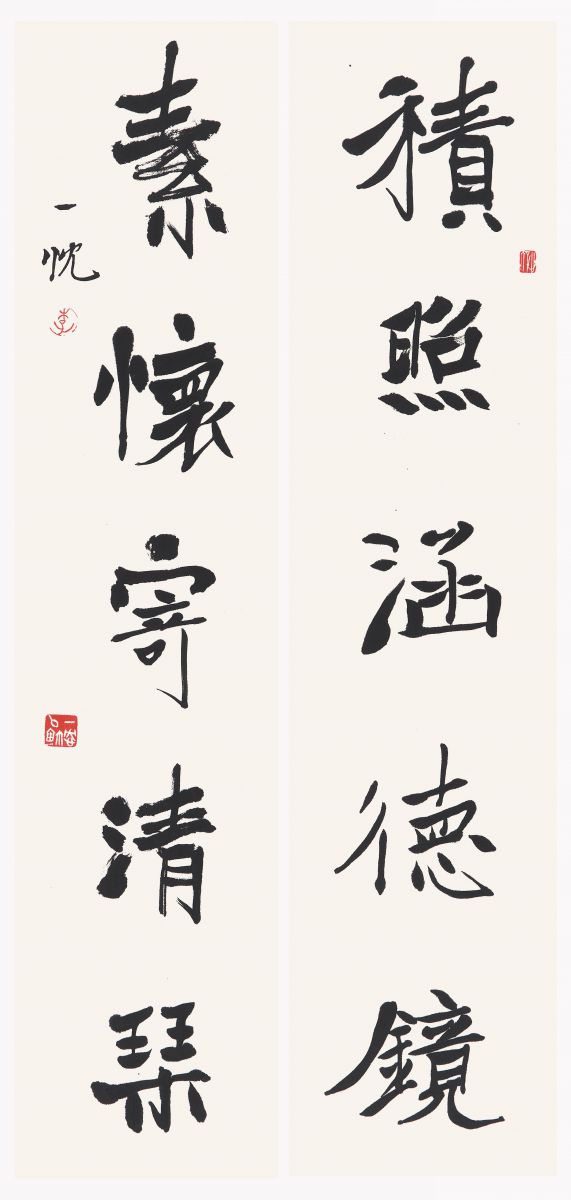 積照涵德鏡
素懷寄清琹
一忱
李